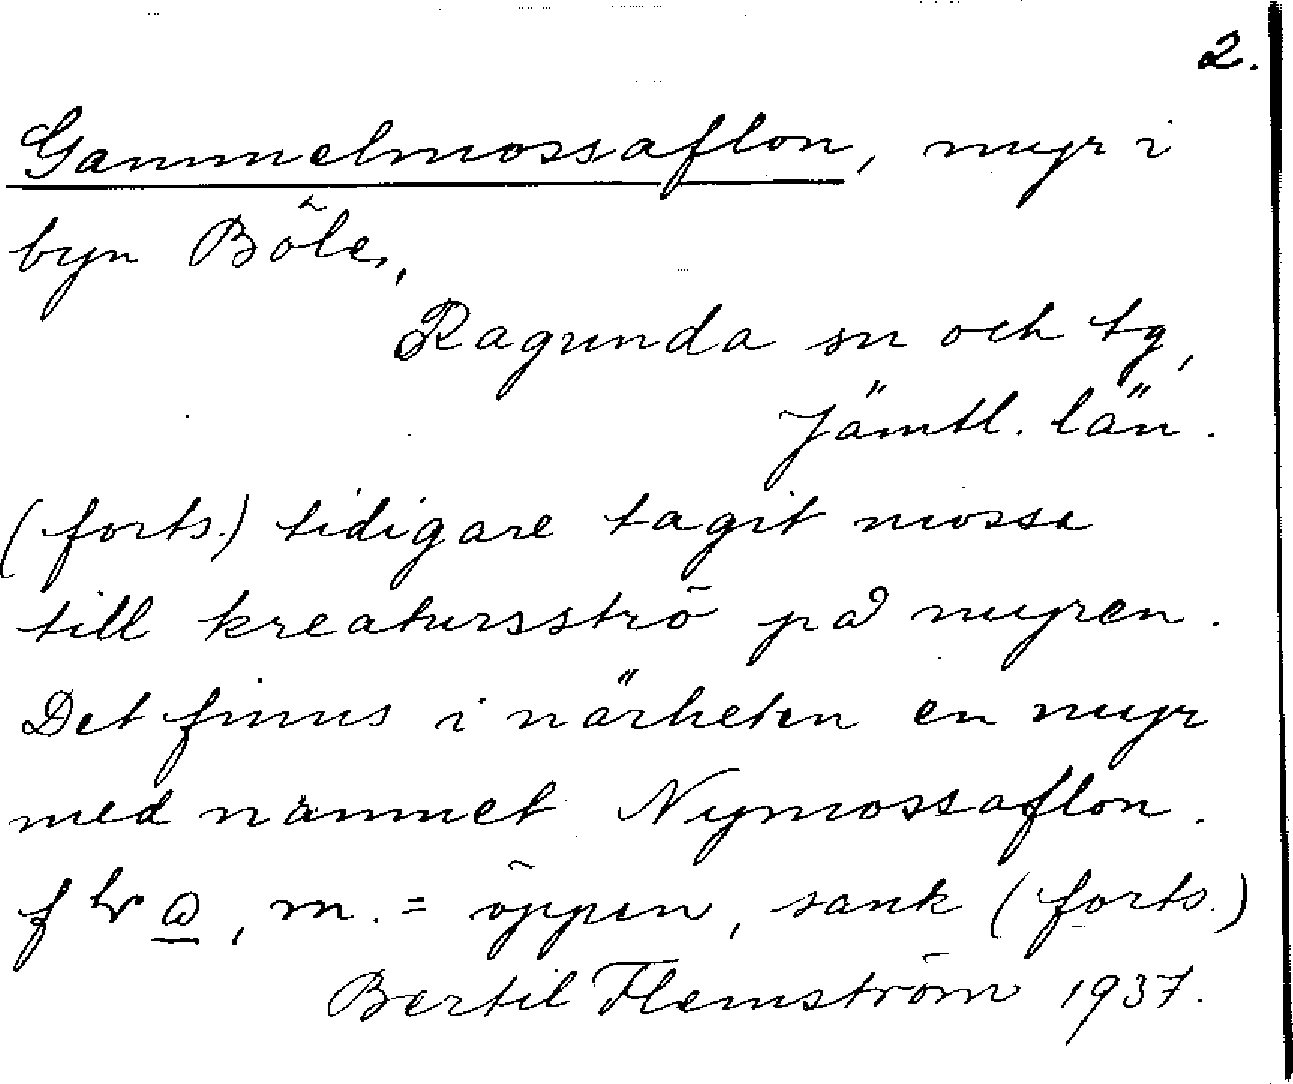 2.
Gammelmossaflon, myr i
byn Böle,
Ragunda sn och tg,
Jämtl. län.
(forts.) tidigare tagit mossa
till kreatursströ på myren.
Det finns i närheten en myr
med namnet Nymossaflon.
, m. = öppen, sank (forts.)
Bertil Flemström 1937.